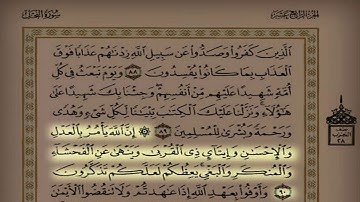 الجزء الرابع عشر سورة النحل
ٱلَّذِينَ كَفَرُوا۟ وَصَدُّوا۟ عَن سَبِيلِ ٱللَّهِ زِدْنَٰهُمْ عَذَابًا فَوْقَ
ٱلْعَذَابِ بِمَا كَانُوا۟ يُفْسِدُونَ ٨٨ وَيَوْمَ نَبْعَثُ فِى كُلِّ
أُمَّةٍ شَهِيدًا عَلَيْهِم مِّنْ أَنفُسِهِمْ وَجِئْنَا بِكَ شَهِيدًا عَلَىٰ
هَٰٓؤُلَآءِ وَنَزَّلْنَا عَلَيْكَ ٱلْكِتَٰبَ تِبْيَٰنًا لِّكُلِّ شَىْءٍ وَهُدًى
وَرَحْمَةً وَبُشْرَىٰ لِلْمُسْلِمِينَ ٨٩ ۞ إِنَّ ٱللَّهَ يَأْمُرُ بِٱلْعَدْلِ
وَٱلْإِحْسَٰنِ وَإِيتَآئِ ذِى ٱلْقُرْبَىٰ وَيَنْهَىٰ عَنِ ٱلْفَحْشَآءِ
وَٱلْمُنكَرِ وَٱلْبَغْىِ يَعِظُكُمْ لَعَلَّكُمْ تَذَكَّرُونَ ٩٠
وَأَوْفُوا۟ بِعَهْدِ ٱللَّهِ إِذَا عَٰهَدتُّمْ وَلَا تَنقُضُوا۟ ٱلْأَيْمَٰنَ
نصف
الحزب
٢٨